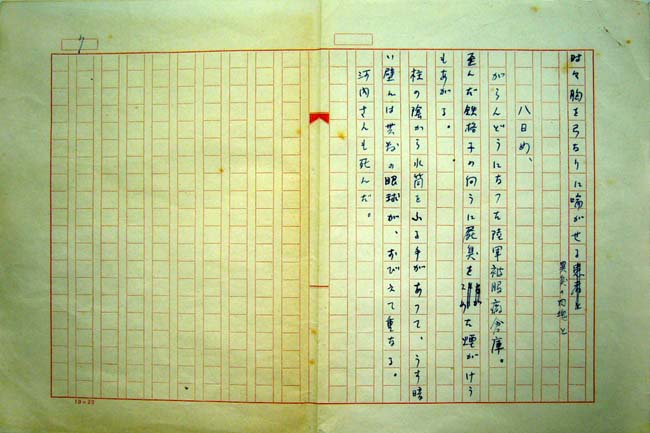 7
時々胸を弓なりに喘がせる
異臭の肉塊と
八日め、
がらんどうになつた陸軍被服廠倉庫。
歪んだ鉄格子の向うに屍臭を た煙がけう
もあがる。
柱の陰から水筒をふる手があつて、うす暗
い壁には無数の眼球が、おびえて重なる。
河内さんも死んだ。